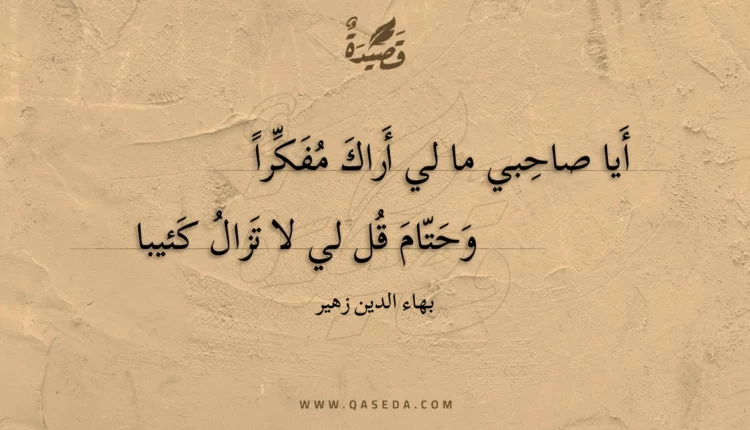 قَصِيْدَةٌ
أَيا صاحِبي ما لي أَراكَ مُفَكِّراً
وَحَتّامَ قُل لي لا تَزالُ كَئيبا
بهاء الدين زهير
WWW.QASEDA.COM